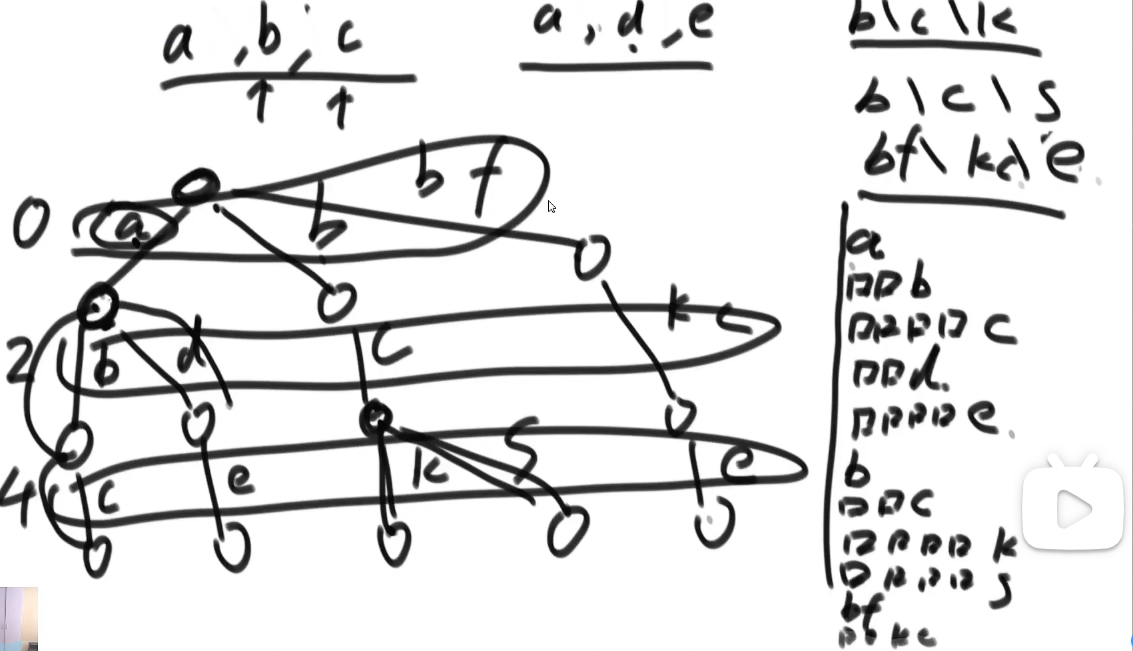 a , b , c
a , d , e
b\c\k
b\c\s
bf\kc\e
0 a b bf
2 b d c kc
4 c e k s e
a
□□b
□□□□c
□□d
□□□□e
b
□□c
□□□□k
□□□□s
bf
□□kc